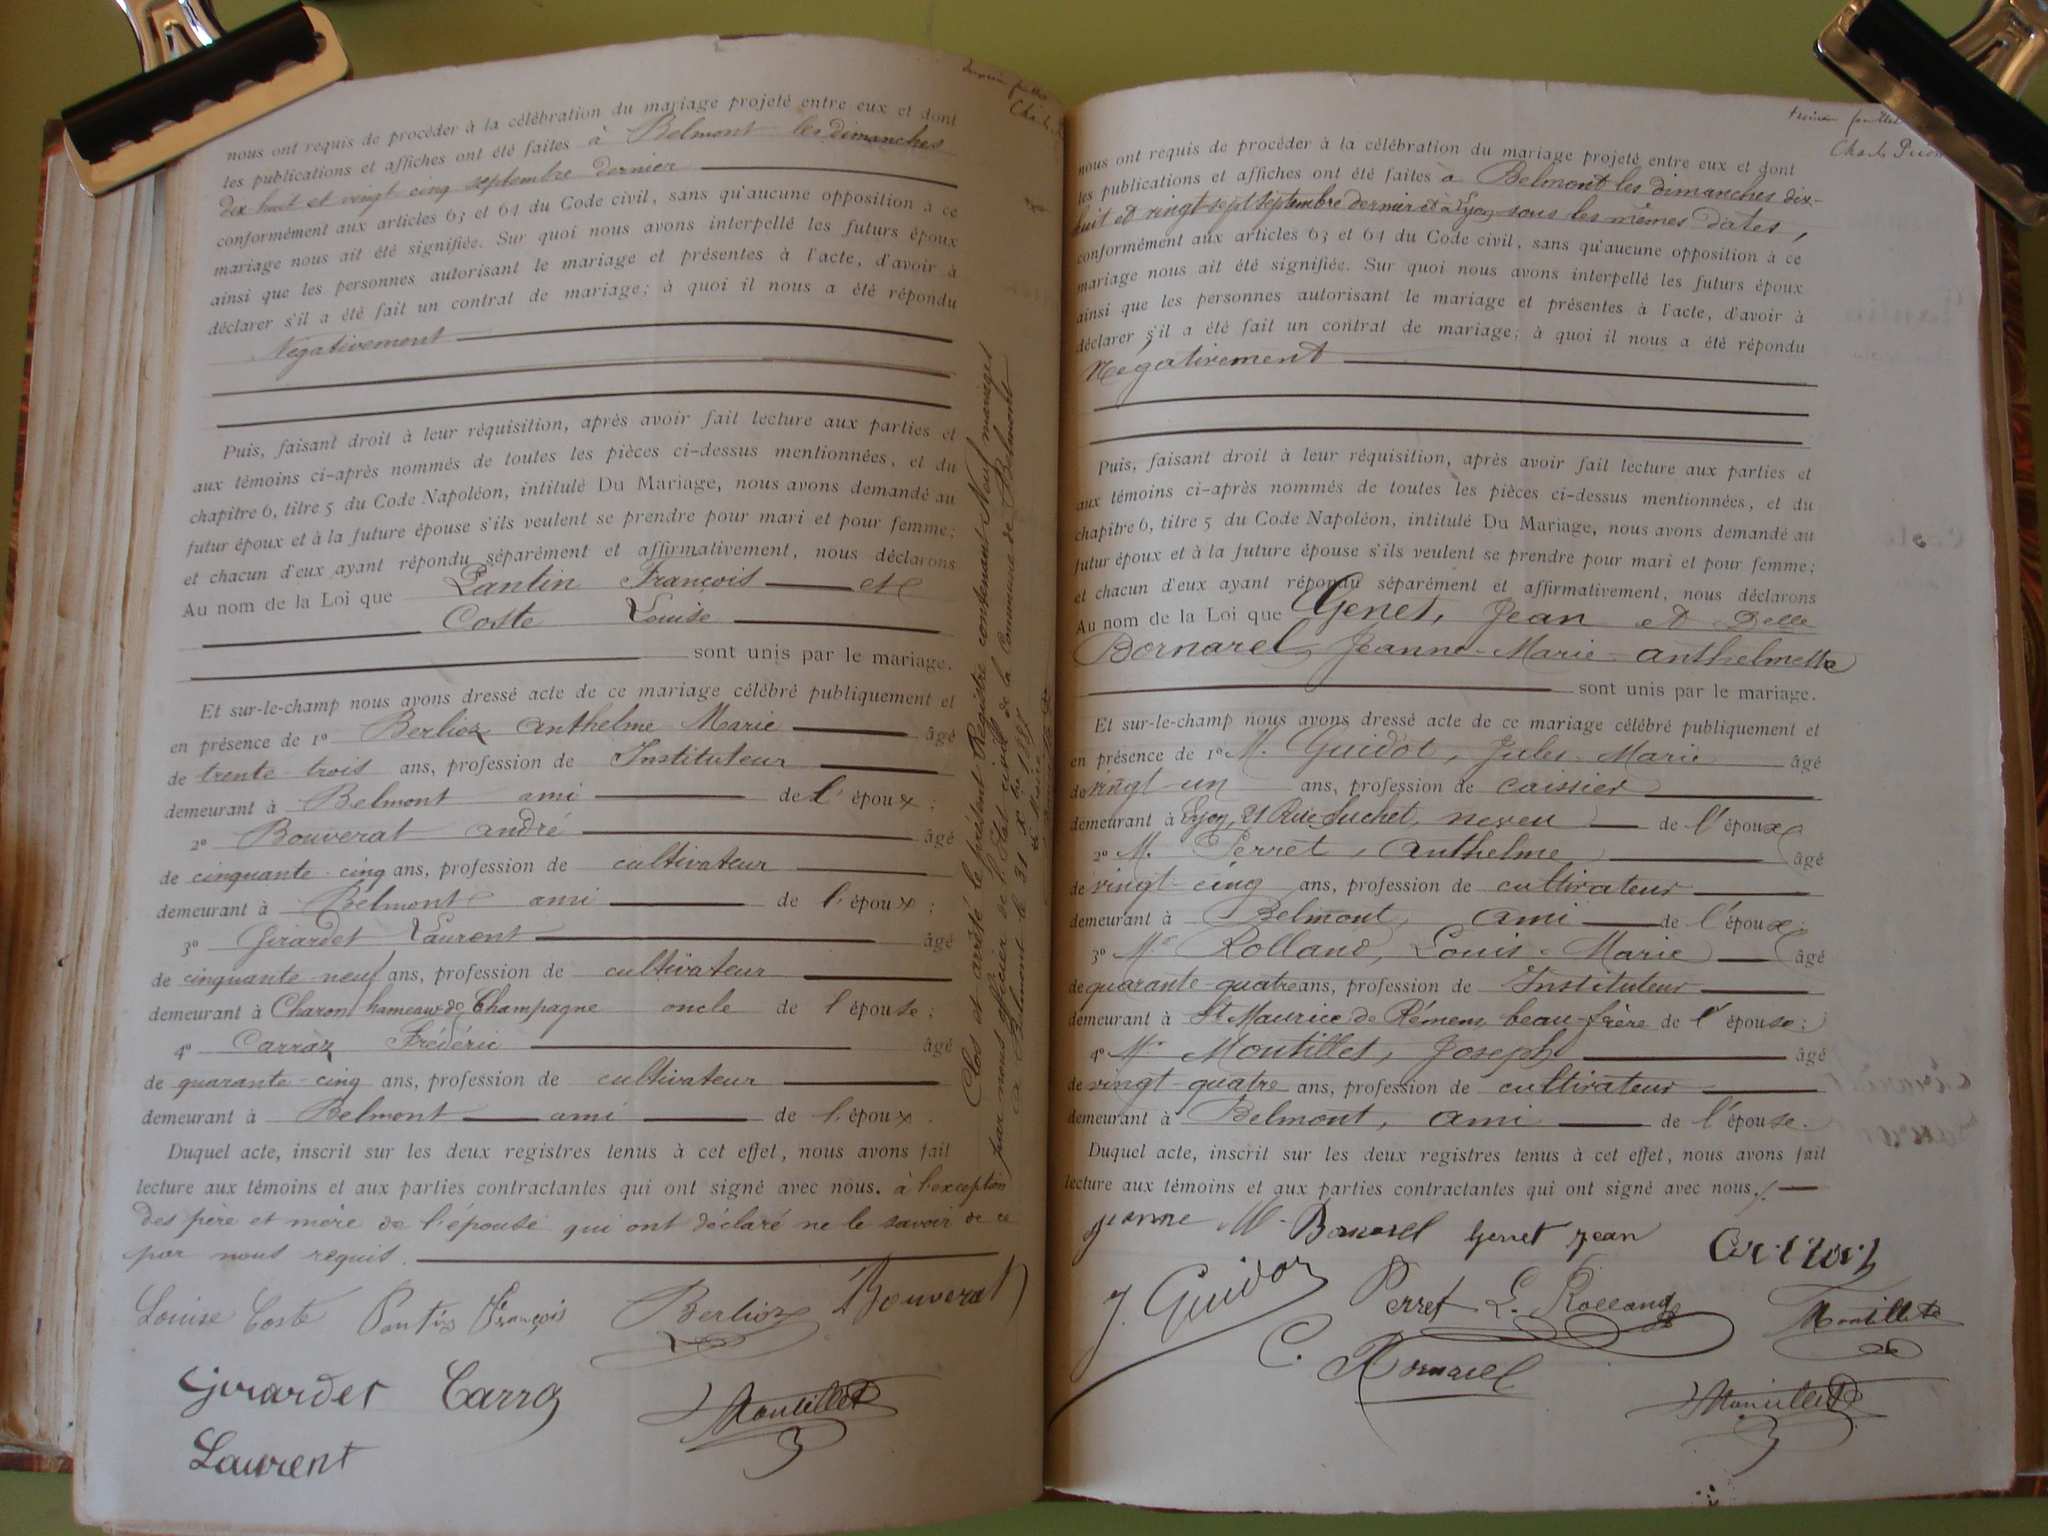 nous ont requis de procéder à la célébration du mariage projeté entre eux et dont
les publications et affiches ont été faites à Belmont les dimanches
dix huit et vingt cinq septembre dernier
conformément aux articles 63 et 64 du Code civil, sans qu'aucune opposition à ce
mariage nous ait été signifiée. Sur quoi nous avons interpellé les futurs époux
ainsi que les personnes autorisant le mariage et présentes à l'acte, d'avoir à
déclarer s'il a été fait un contrat de mariage; à quoi il nous a été répondu
Négativement
Puis, faisant droit à leur réquisition, après avoir fait lecture aux parties et
aux témoins ci-après nommés de toutes les pièces ci-dessus mentionnées, et du
chapitre 6, titre 5 du Code Napoléon, intitulé Du Mariage, nous avons demandé au
futur époux et à la future épouse s'ils veulent se prendre pour mari et pour femme;
et chacun d'eux ayant répondu séparément et affirmativement, nous déclarons
Au nom de la Loi que Pantin François et
Coste Louise
sont unis par le mariage.
Et sur-le-champ nous avons dressé acte de ce mariage célébré publiquement et
en présence de 1º Berlioz Anthelme Marie âgé
de trente trois ans, profession de Instituteur
demeurant à Belmont ami de l'époux;
2º Bouverat André âgé
de cinquante-cinq ans, profession de cultivateur
demeurant à Belmont ami de l'époux;
3º Girardet Laurent âgé
de cinquante neuf ans, profession de cultivateur
demeurant à Charon hameau de Champagne oncle de l'épouse;
4º Carraz Frédéric âgé
de quarante-cinq ans, profession de cultivateur
demeurant à Belmont ami de l'époux.
Duquel acte, inscrit sur les deux registres tenus à cet effet, nous avons fait
lecture aux témoins et aux parties contractantes qui ont signé avec nous. à l'exception
des père et mère de l'épouse qui ont déclaré ne le savoir de ce
par nous requis.
Louise Coste Pantin François Berlioz Bouverat
Girardet Carraz
Laurent Montillet
Clos et arrêté le présent Registre contenant Neuf mariages
par nous officier de l'État civil de la Commune de Belmont
à Belmont le 31 Xbre
Charles
nous ont requis de procéder à la célébration du mariage projeté entre eux et dont
les publications et affiches ont été faites à Belmont les dimanches dix-
huit et vingt sept septembre dernier et à Lyon sous les mêmes dates,
conformément aux articles 63 et 64 du Code civil, sans qu'aucune opposition à ce
mariage nous ait été signifiée. Sur quoi nous avons interpellé les futurs époux
ainsi que les personnes autorisant le mariage et présentes à l'acte, d'avoir à
déclarer s'il a été fait un contrat de mariage; à quoi il nous a été répondu
Négativement
Puis, faisant droit à leur réquisition, après avoir fait lecture aux parties et
aux témoins ci-après nommés de toutes les pièces ci-dessus mentionnées, et du
chapitre 6, titre 5 du Code Napoléon, intitulé Du Mariage, nous avons demandé au
futur époux et à la future épouse s'ils veulent se prendre pour mari et pour femme;
et chacun d'eux ayant répondu séparément et affirmativement, nous déclarons
Au nom de la Loi que Genet, Jean et Delle
Bornarel, Jeanne-Marie-Anthelmette
sont unis par le mariage.
Et sur-le-champ nous avons dressé acte de ce mariage célébré publiquement et
en présence de 1º M. Guidot, Jules-Marie âgé
de vingt-un ans, profession de caissier
demeurant à Lyon, 21 Rue Suchet, neveu de l'époux
2º M. Perret, Anthelme âgé
de vingt-cinq ans, profession de cultivateur
demeurant à Belmont, ami de l'époux;
3º M. Rolland, Louis-Marie âgé
de quarante-quatre ans, profession de Instituteur
demeurant à St Maurice de Rémens beau-frère de l'épouse;
4º M. Montillet, Joseph âgé
de vingt-quatre ans, profession de cultivateur
demeurant à Belmont, ami de l'épouse.
Duquel acte, inscrit sur les deux registres tenus à cet effet, nous avons fait
lecture aux témoins et aux parties contractantes qui ont signé avec nous./.
Jeanne M. Bornarel Genet Jean
J. Guidot Perret L. Rolland Montillet
C. Bornarel
Montillet